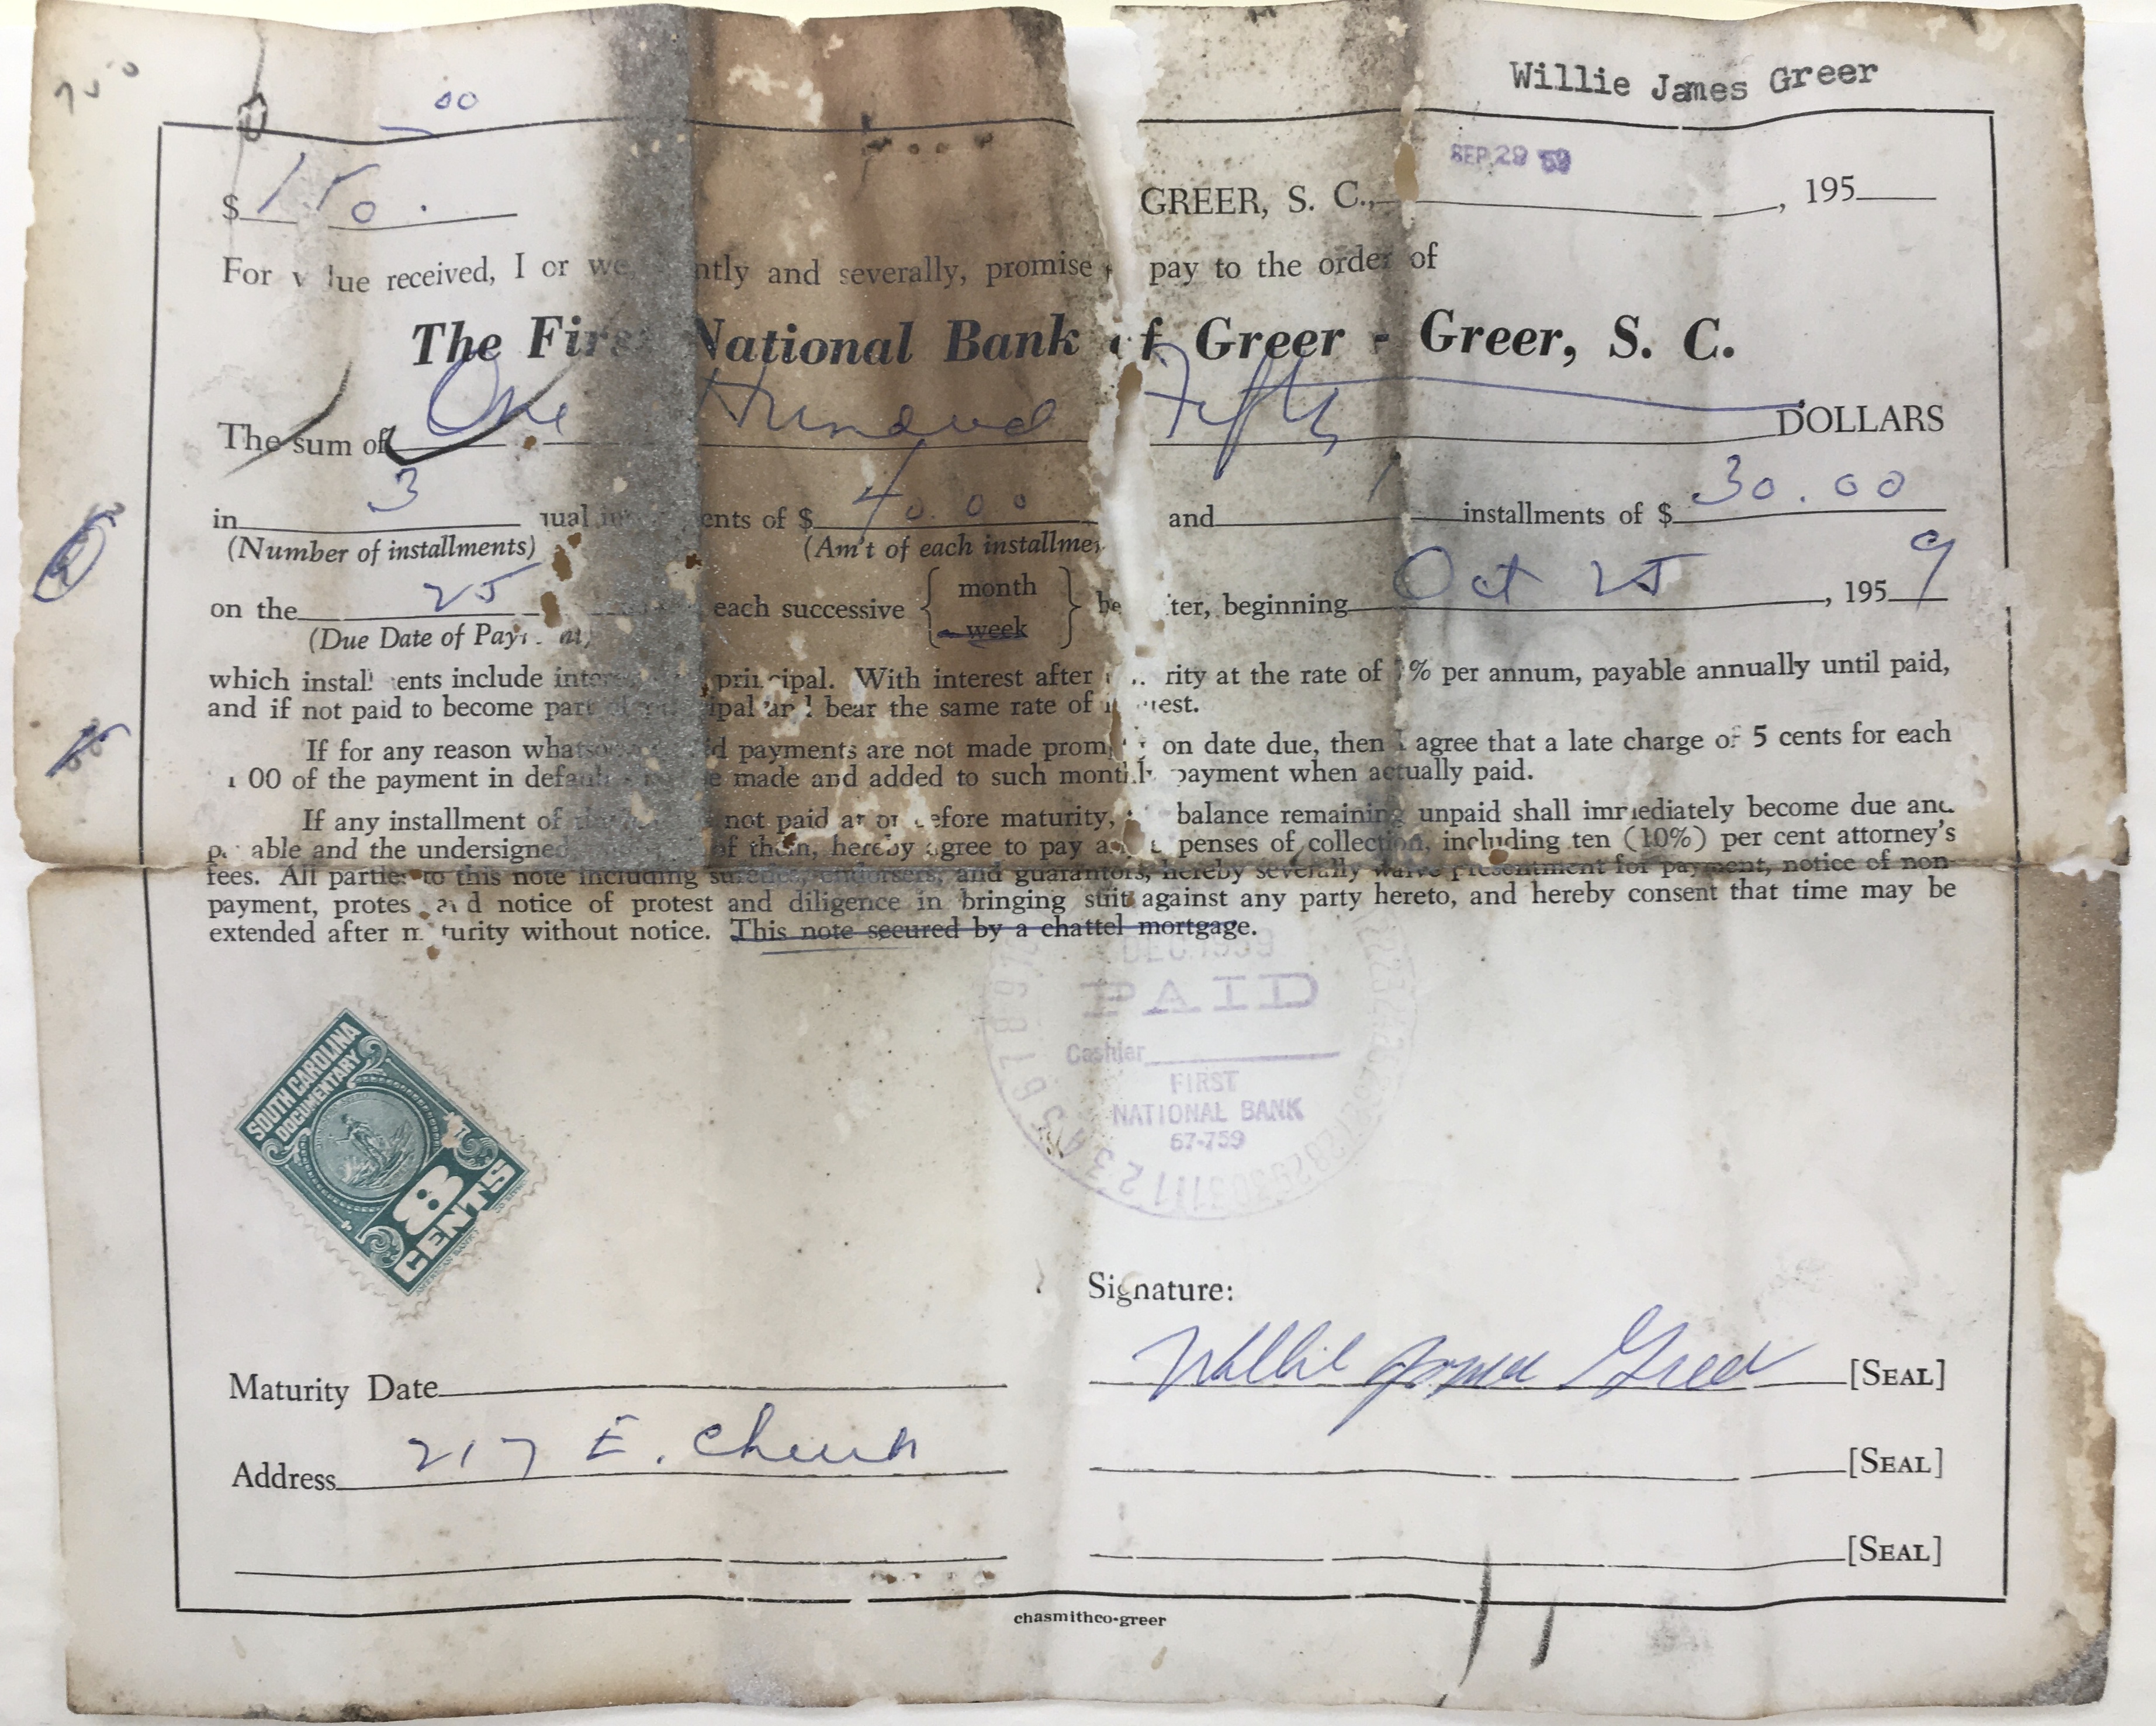 Willie James Greer
00
SEP 29 59
$ 150.
GREER, S. C., , 195
For received, I or we, and severally, promise pay to the order of
The First National Bank of Greer - Greer, S. C.
The sum of One Hundred Fifty DOLLARS
in 3 of $ 40.00 and 1 installments of $ 30.00
(Number of installments) (Am't of each
on the 25 each successive month beginning Oct 25, 1959
week
(Due Date of
which include principal. With interest after at the rate of % per annum, payable annually until paid,
and if not paid to become bear the same rate of
If for any reason payments are not made on date due, then I agree that a late charge of 5 cents for each
00 of the payment in made and added to such payment when actually paid.
If any installment of not paid at or before maturity, balance remaining unpaid shall immediately become due and
able and the undersigned of them, hereby agree to pay of collection, including ten (10%) per cent attorney's
fees. All parties to this note including sureties, endorsers, and guarantors, hereby severally waive presentment for payment, notice of non-
payment, protest and notice of protest and diligence in bringing suit against any party hereto, and hereby consent that time may be
extended after maturity without notice. This note secured by a chattel mortgage.
DEC 1959
PAID
Cashier
FIRST
NATIONAL BANK
67-759
SOUTH CAROLINA
DOCUMENTARY
8
CENTS
Signature:
Maturity Date Willie James Greer [SEAL]
Address 217 E. Church [SEAL]
[SEAL]
chasmithco-greer